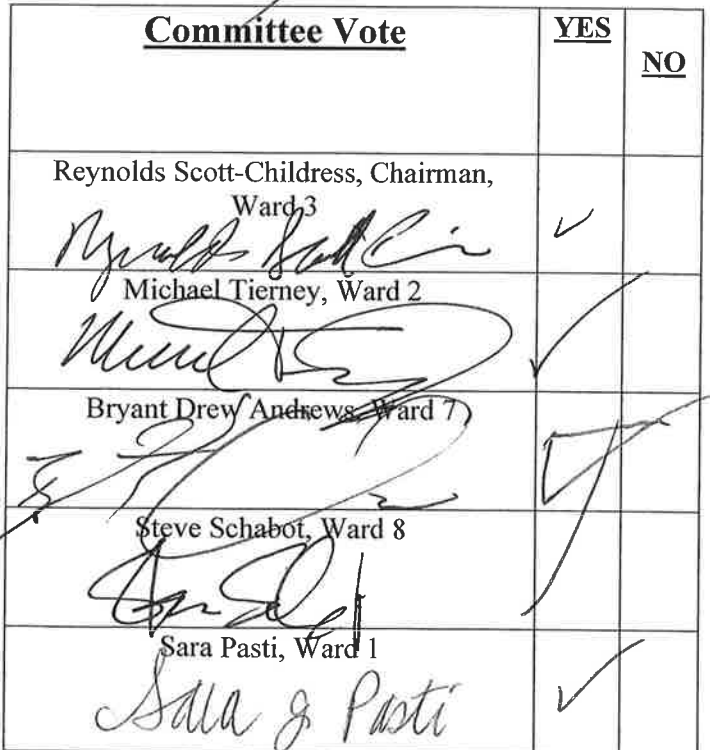 Committee Vote YES NO
Reynolds Scott-Childress, Chairman,
Ward 3
Michael Tierney, Ward 2
Bryant Drew Andrews, Ward 7
Steve Schabot, Ward 8
Sara Pasti, Ward 1
Sara J Pasti